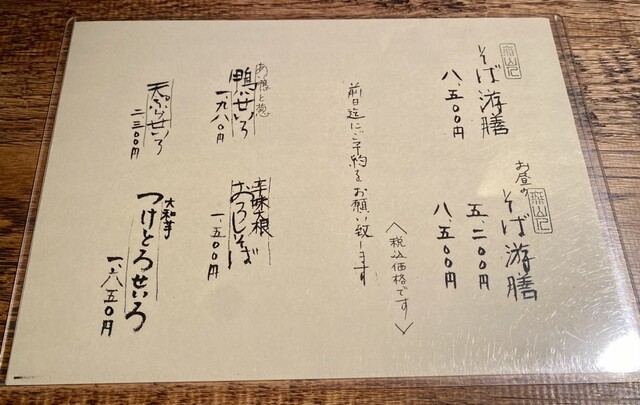 そば游膳
八、五〇〇円
お昼の
そば游膳
五、二〇〇円
八、五〇〇円
<税込価格です>
前日迄にご予約をお願い致します
鴨せいろ
一、九八〇円
辛味大根
おろしそば
一、五〇〇円
天ぷらせいろ
二三〇〇円
大和芋
つけとろせいろ
一、六五〇円